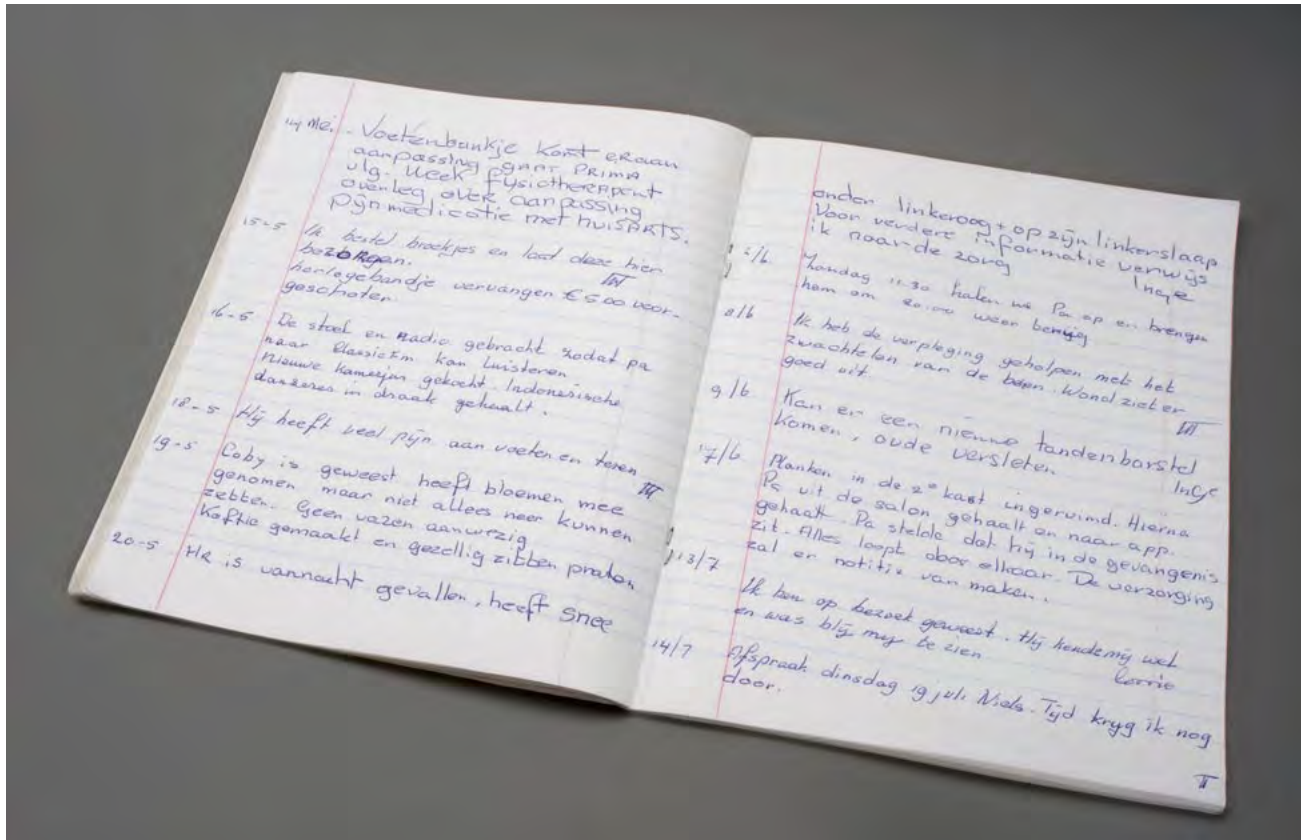 14 Mei. - Voetenbankje komt eraan
aanpassing gaat PRIMA
vlg. week fysiotherapeut
overleg over aanpassing
pijnmedicatie met huisARTS.
15-5 Ik bestel broekjes en laat deze hier
bezorgen.
horlogebandje vervangen € 5.00 voor-
geschoten.
16-5 De stoel en Radio gebracht zodat pa
naar Classicfm kan luisteren
Nieuwe kamerjas gekocht. Indonesische
danseres in draak gehaalt.
18-5 Hij heeft veel pijn aan voeten en tenen
19-5 Coby is geweest heeft bloemen mee
genomen maar niet allees neer kunnen
zebben. Geen vazen aanwezig
Koffie gemaakt en gezellig zibben praten
20-5 HR is vannacht gevallen, heeft snee
onder linkeroog + op zijn linkerslaap
Voor verdere informatie verwijs
ik naar de zorg
Ingje
/6 Zondag 11.30 halen we Pa op en brengen
hem om 20.00 weer
8/6 Ik heb de verpleging geholpen met het
zwachtelen van de been. Wond ziet er
goed uit
9/6 Kan er een nieuwe tandenborstel
komen, oude versleten
Ingje
17/6 Planken in de 2e kast ingeruimd. Hierna
Pa uit de salon gehaalt en naar app.
gehaalt. Pa stelde dat hij in de gevangenis
zit. Alles loopt door elkaar. De verzorging
zal er notitie van maken.
13/7 Ik ben op bezoek geweest. Hij kende mij wel
en was blij mij te zien
Corrie
14/7 Afspraak dinsdag 19 juli Niels. Tijd kryg ik nog
door.